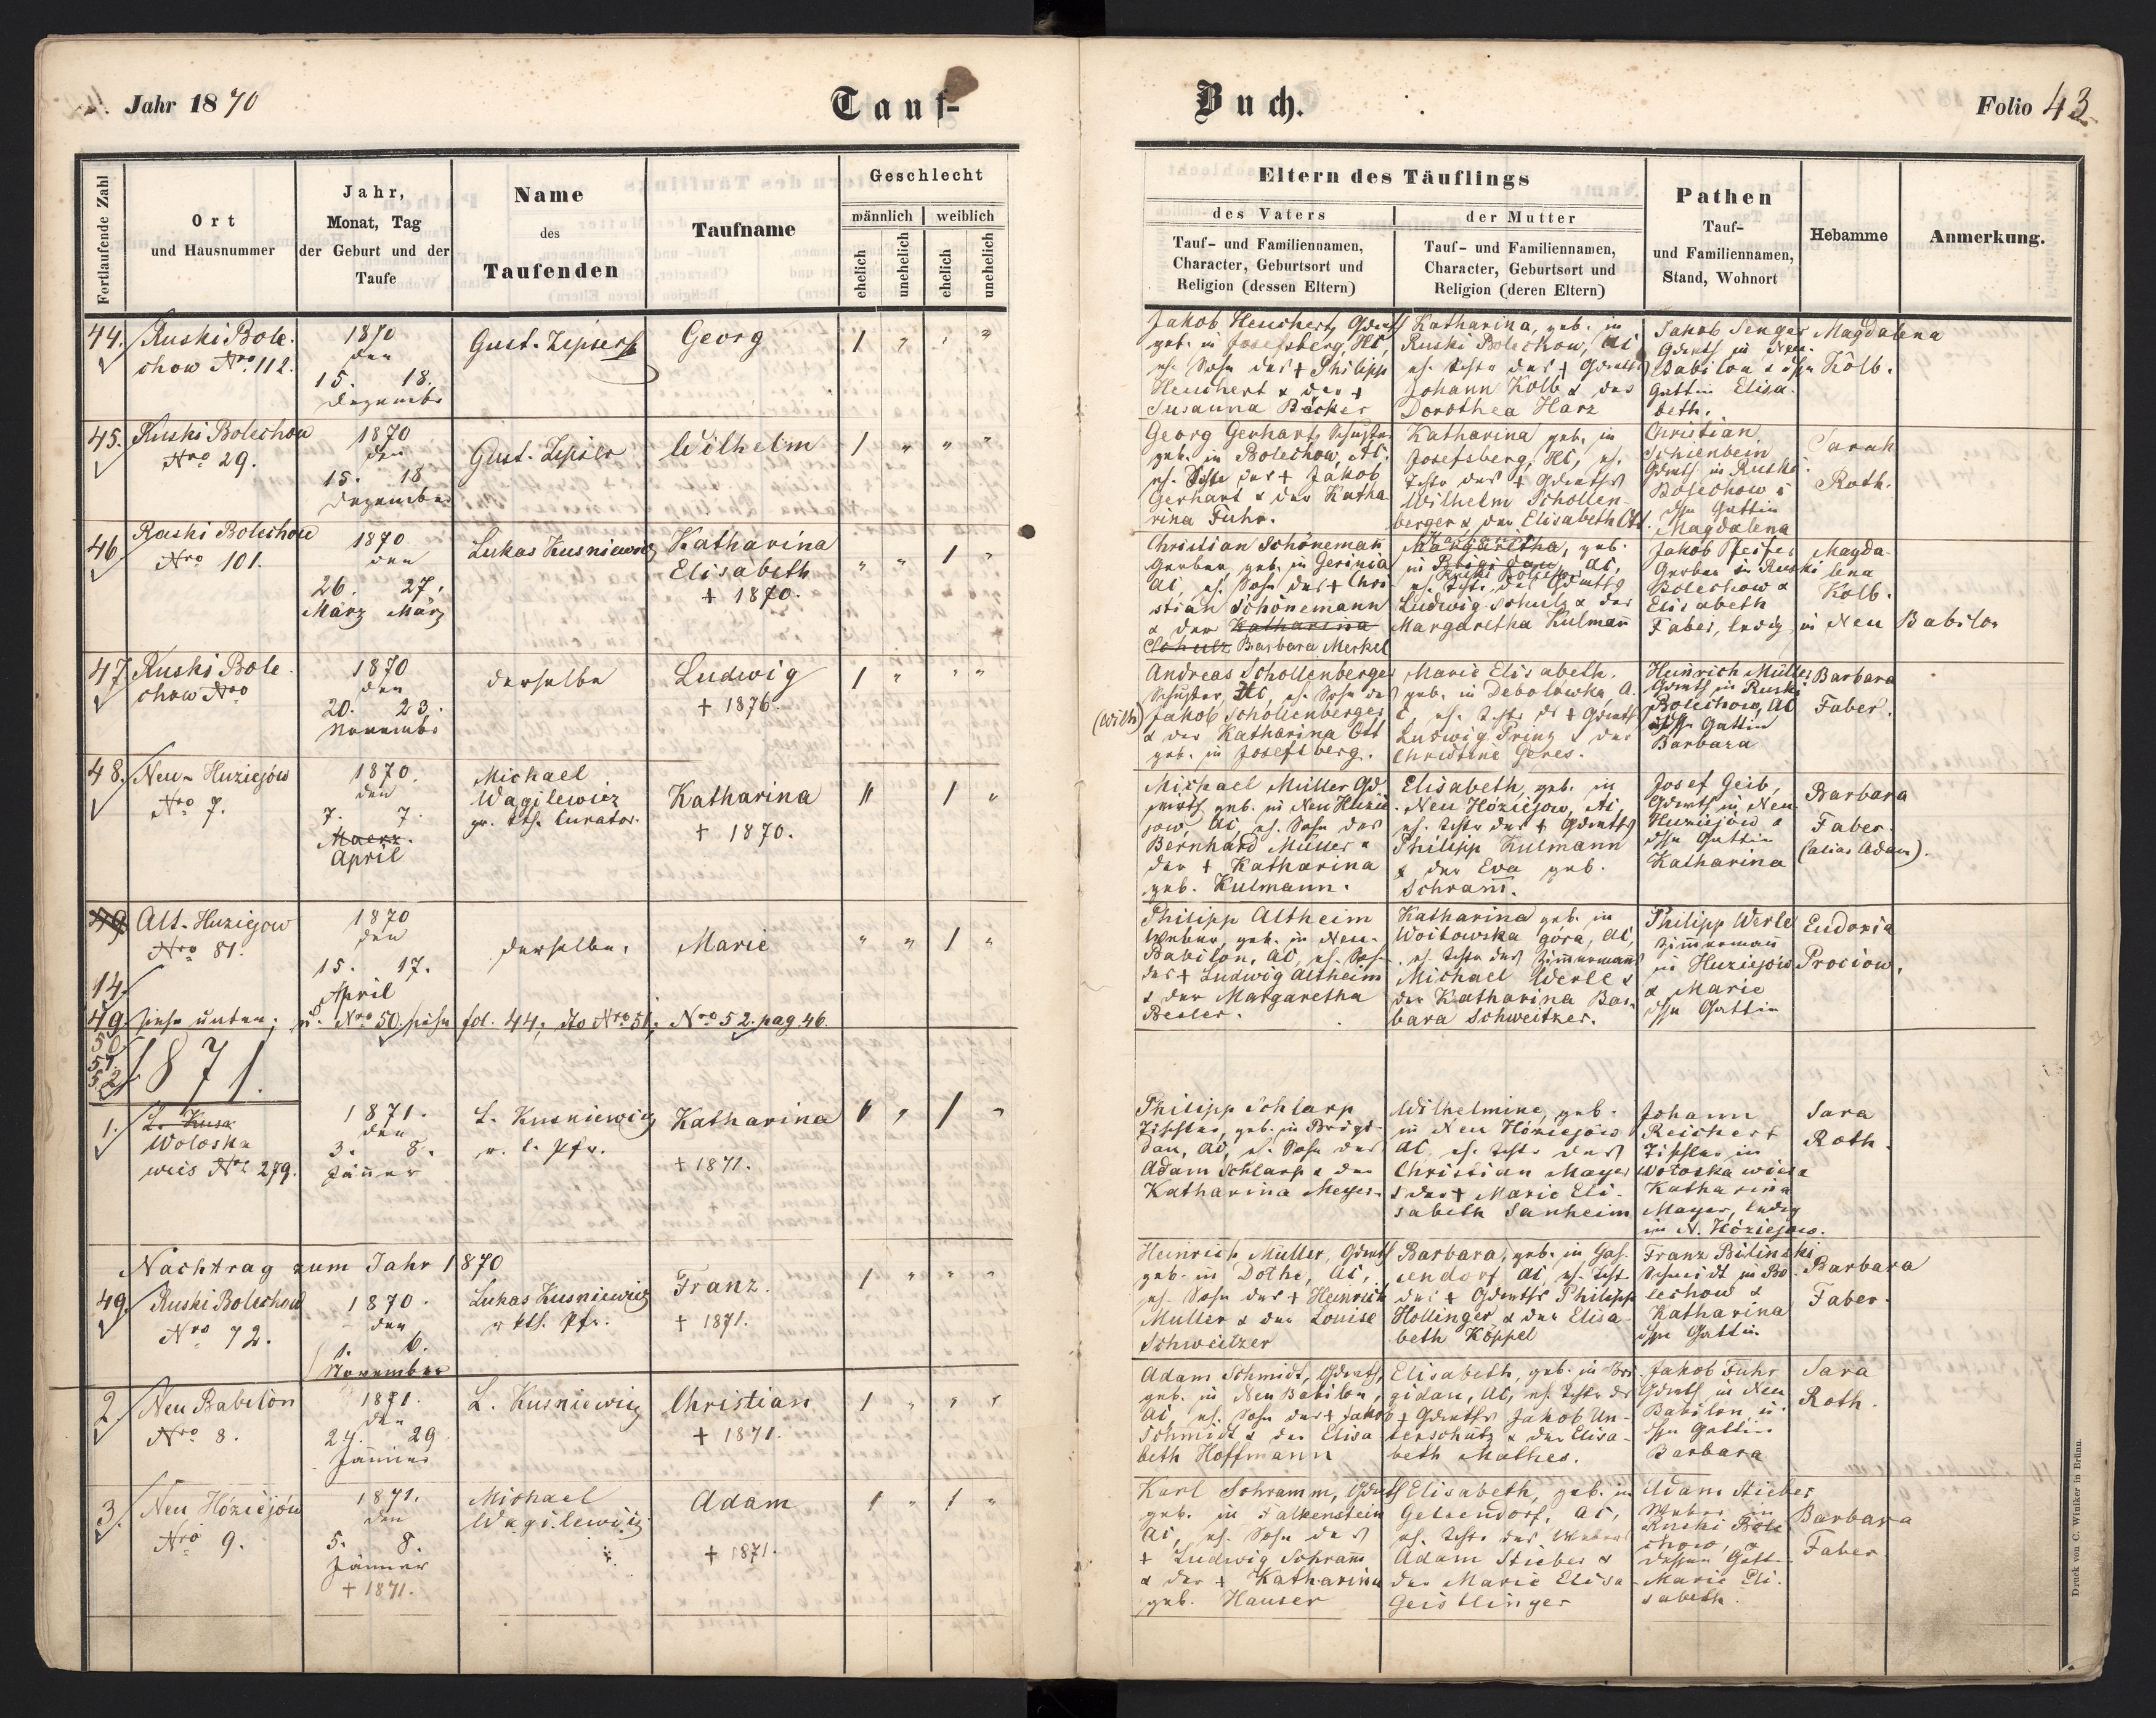 Jahr 1870
Tauf-
Buch.
Folio 43.
Fortlaufende Zahl
Ort
und Hausnummer
Jahr,
Monat, Tag
der Geburt und der
Taufe
Name
des
Taufenden
Taufname
Geschlecht
männlich
weiblich
ehelich
unehelich
ehelich
unehelich
Eltern des Täuflings
des Vaters
Tauf- und Familiennamen,
Character, Geburtsort und
Religion (dessen Eltern)
der Mutter
Tauf- und Familiennamen,
Character, Geburtsort und
Religion (deren Eltern)
Pathen
Tauf-
und Familiennamen,
Stand, Wohnort
Hebamme
Anmerkung.
44.
Ruski Bole-
chow Nro 112.
1870
den
15. 18.
Dezember
Gust. Zipser
Georg
1 " " "
Jakob Heuchert,
geb. in Josefsberg, HC,
eh. Sohn des + Philipp
Heuchert & der +
Susanna Bäcker
Katharina, geb. in
Ruski Bolechow, AC
Johann Kolb & der
Dorothea Harz
Jakob Senger
in Neu-
Babilon &
Gattin Elisa-
beth.
Magdalena
Kolb.
45.
Ruski Bolechow
Nro 29.
1870
den
15. 18
Dezember
Gust. Zipser
Wilhelm
1 " " "
Georg Gerhart, Schuster
geb. in Bolechow, AC.
Jakob
Gerhart & der Katha-
rina Fuhr.
Katharina geb. in
Josefsberg, HC, eh.
Wilhelm Schollen-
berger & der Elisabeth Ott.
Christian
Schienbein
in Ruski-
Bolechow &
Gattin
Magdalena
Sarah
Roth.
46
Ruski Bolechow
Nro 101.
1870
den
26. 27.
März März
Lukas Kusniewicz
Katharina
Elisabeth
+ 1870.
" " 1 "
Christian Schönemann
Gerber, geb. in Gerinia
AC, eh. Sohn des + Chri
stian Schönemann
& der Katharina
Schulz Barbara Merkel
Margaretha, geb.
in Brigidau, AC,
Ruski Bolechow
Ludwig Schulz & der
Margaretha Kulmann
Jakob Pfeifer
Gerber in Ruski
Bolechow &
Elisabeth
Faber, ledig in Neu Babilon
Magda-
lena
Kolb.
47.
Ruski Bole-
chow Nro
1870
den
20. 23.
November
derselbe
Ludwig
+ 1876.
1 " " "
Andreas Schollenberger
Schuster, HC, eh. Sohn des
(Wilh) Jakob Schollenberger
& der Katharina Ott
geb. in Josefsberg.
Marie Elisabeth.
geb. in Debolówka, A.
C,
Ludwig Prinz & der
Christine Geres.
Heinrich Müller
in Ruski
Bolechow, AC
Gattin
Barbara
Barbara
Faber.
48.
Neu-Huziejów
Nro 7.
1870.
den
7. 7.
Maerz.
April
Michael
Wagilewicz
gr. kth. Curator.
Katharina
+ 1870.
1 "
Michael Müller
geb. in Neu Huzie-
jow, AC, eh. Sohn des
Bernhard Müller &
der + Katharina
geb. Kulmann.
Elisabeth, geb. in
Neu Hóziejow, AC,
Philipp Kulmann
& der Eva geb.
Schramm.
Josef Geib,
in Neu-
Huziejów &
Gattin
Katharina
Barbara
Faber.
(alias Adam).
49
Alt-Huziejow
Nro 81.
1870
den
15. 17.
April
derselbe.
Marie
" " 1 "
Philipp Altheim
Weber, geb. in Neu-
Babilon, AC, eh. Sohn
des + Ludwig Altheim
& der Margaretha
Besler.
Katharina geb. in
Woitowska góra, AC,
Michael Werle &
der Katharina Bar-
bara Schweitzer.
Philipp Werle
Zimmermann
in Huziejów
& Marie
Gattin
Eudoxia
Prociow.
14.
49. siehe unten; u. Nro 50. siehe fol. 44; dto Nro 51, Nro 52. pag 46.
50
51.
52
1871.
1.
L. Kusn
Woloska
wies Nro 279.
1871.
den
3. 8.
Jänner
L. Kusniewicz
r. l. Pfr.
Katharina
+ 1871.
" 1 "
Philipp Schlarp
Tischler, geb. in Brigi-
dau, AC, e. Sohn des
Adam Schlarp & der
Katharina Meyer.
Wilhelmine, geb.
in Neu Hóziejow
AC,
Christian Mayer
& der + Marie Eli-
sabeth Sanheim
Johann
Reichert
Tischler in
Wołoska wies &
Katharina
Mayer, ledig
in N. Hóziejow.
Sara
Roth.
Nachtrag zum Jahr 1870
49.
Ruski Bolechow
Nro 72.
1870.
den
1. 6.
November
Lukas Kusniewicz
r. kth. Pfr.
Franz.
+ 1871.
1 " " "
Heinrich Müller,
geb. in Dolhe, AC,
eh. Sohn des + Heinrich
Müller & der Louise
Schweitzer
Barbara, geb. in Gas-
sendorf AC,
Philipp
Hollinger & der Elisa-
beth Köppel
Franz Bilinski
Schmidt in Bo-
lechow &
Katharina
Gattin
Barbara
Faber.
2
Neu Babilon
Nro 8.
1871.
den
24. 29
Jänner
L. Kusniewicz
Christian
+ 1871.
1 " " "
Adam Schmidt,
geb. in Neu Babilon,
AC, eh. Sohn des + Jakob
Schmidt & der Elisa
beth Hoffmann
Elisabeth, geb. in Bri-
gidau, AC,
Jakob Un-
terschütz & der Elisa-
beth Mathes.
Jakob Fuhr
in Neu
Babilon u.
Gattin
Barbara
Sara
Roth.
3.
Neu Hóziejów
Nro 9.
1871.
den
5. 8.
Jänner
+ 1871.
Michael
Wagilewicz
Adam
+ 1871.
1 " 1 "
Karl Schramm,
geb. in Falkenstein
AC, eh. Sohn des
+ Ludwig Schramm
& der + Katharina
geb. Hauser
Elisabeth, geb. in
Gelsendorf, AC,
Adam Stieber &
der Marie Elisa-
Geistlinger
Adam Stieber
Weber in
Ruski Bole
chow, &
dessen Gattin
Marie Eli-
sabeth.
Barbara
Faber
Druck von C. Winiker in Brünn.